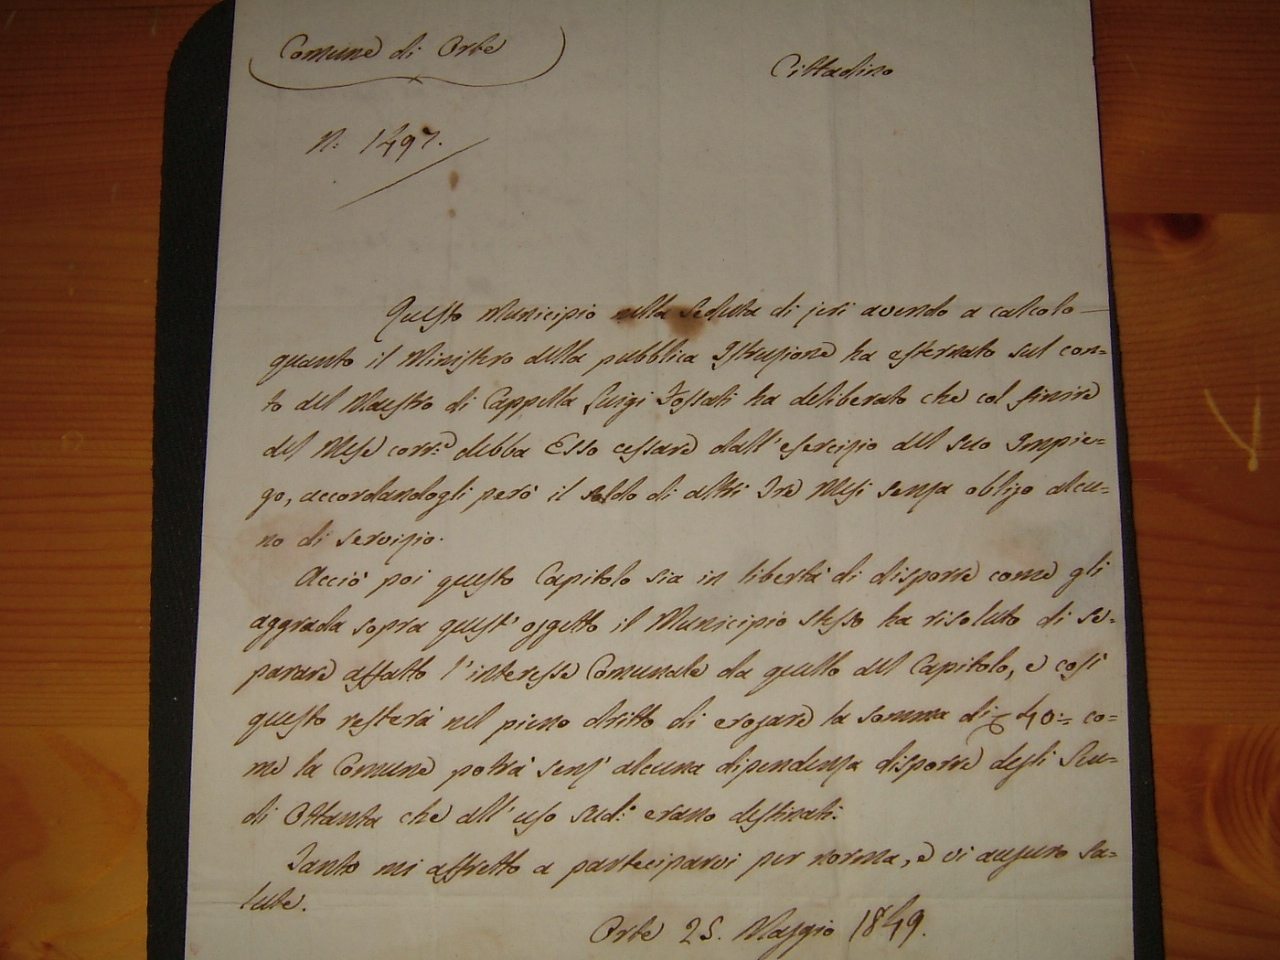 Comune di Orte
Cittadino
N: 1497.
Questo Municipio nella Seduta di jeri avendo a calcolo
quanto il Ministro della pubblica Istruzione ha esternato sul con=
to del Maestro di Cappella Luigi Fossati ha deliberato che col finire
del Mese corr.e debba Esso cessare dall'esercizio del suo Impie=
go, accordandogli però il soldo di altri Tre Mesi senza obligo alcu=
no di servizio.
Acciò poi questo Capitolo sia in libertà di disporre come gli
aggrada sopra quest'oggetto il Municipio stesso ha risoluto di se=
parare affatto l'interesse Comunale da quello del Capitolo, e così
questo resterà nel pieno dritto di erogare la somma di 40:= co=
me la Comune potrà senz'alcuna dipendenza disporre degli Scu=
di Ottanta che all'uso sud.o erano destinati.
Tanto mi affretto a parteciparvi per norma, e vi auguro sa=
lute.
Orte 25. Maggio 1849.